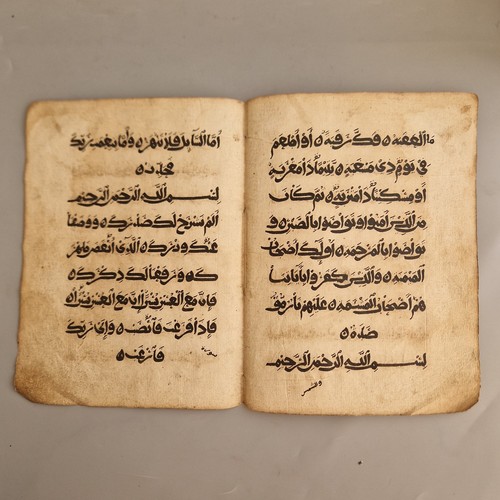 ما العقبة ه فك رقبة ه أو اطعم
في يوم ذي مسغبة ه يتيما ذا مقربة
أو مسكينا ذا متربة ه ثم كان
من الذين آمنوا وتواصوا بالصبر ه و
تواصوا بالمرحمة ه أولئك أصحاب
الميمنة ه والذين كفروا بآياتنا
هم أصحاب المشئمة ه عليهم نار مو
صدة ه
بسم الله الرحمن الرحيم
أما السائل فلا تنهر ه وأما بنعمة ربك
فحدث ه
بسم الله الرحمن الرحيم
ألم نشرح لك صدرك ه ووضعنا
عنك وزرك ه الذي أنقض ظهر
ك ه ورفعنا لك ذكرك ه
فإن مع العسر يسرا إن مع العسر يسرا ه
فإذا فرغت فانصب ه وإلى ربك
فارغب ه